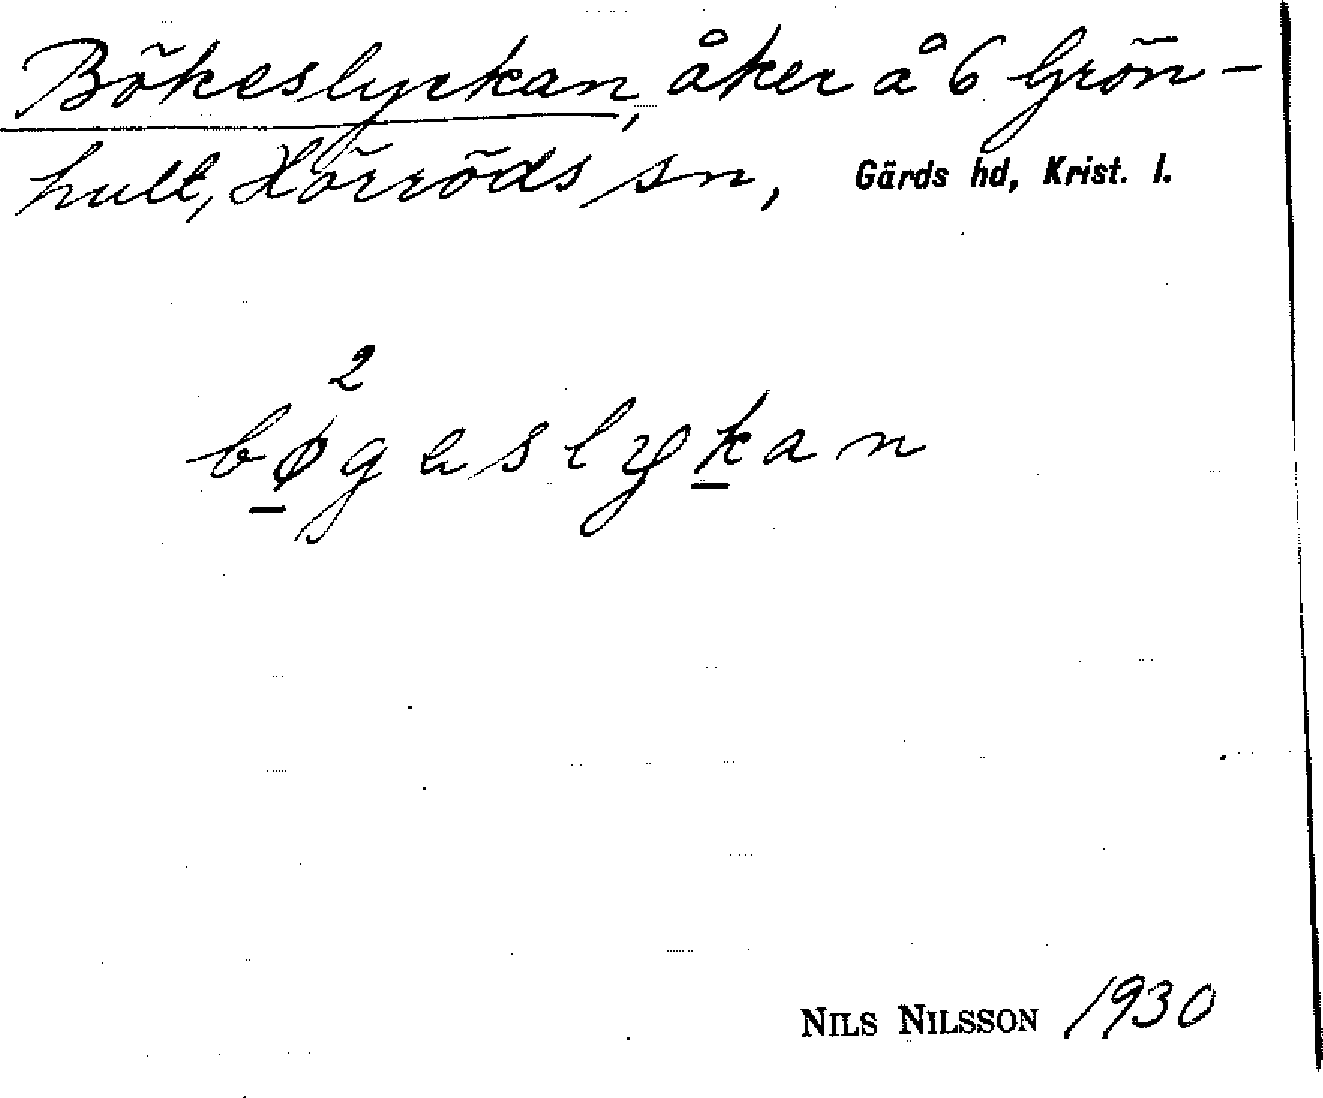 Bökeslyckan, åker å 6 Grön-
hult, Hörröds sn, Gärds hd, Krist. l.
2
bøgeslykan
NILS NILSSON 1930